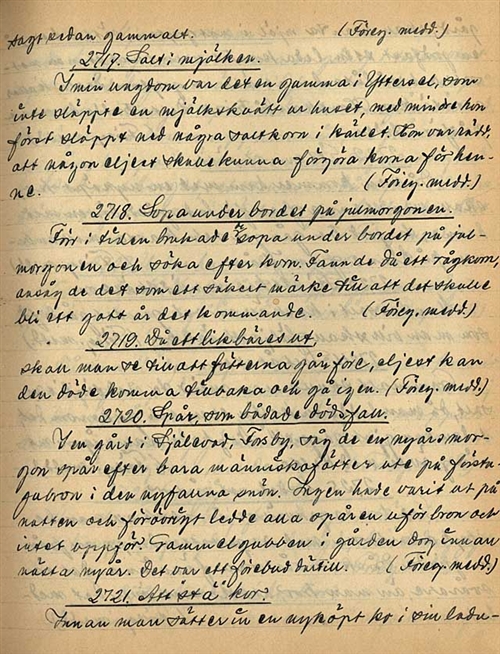 sagt redan gammalt. (Föreg. medd.)
2717. Salt i mjölken.
I min ungdom var det en gumma i Yttersel, som
inte släppte en mjölkskvätt ur huset, med mindre hon
först släppt ned några saltkorn i kärlet. Hon var rädd,
att någon eljest skulle kunna förgöra korna för hen-
ne. (Föreg. medd.)
2718. Sopa under bordet på julmorgonen.
Förr i tiden brukade de sopa under bordet på jul-
morgonen och söka efter korn. Funno de då ett rågkorn,
ansåg de det som ett säkert märke till att det skulle
bli ett gott år det kommande. (Föreg. medd.)
2719. Då ett lik bäres ut,
skall man se till att fötterna gå före, eljest kan
den döde komma tillbaka och gå igen. (Föreg. medd.)
2720. Spår, som bådade dödsfall.
I en gård i Själevad, Forsby, såg de en nyårsmor-
gon spår efter bara människofötter ute på första
gubron i den nyfallna snön. Ingen hade varit ut på
natten och förövrigt ledde alla spåren utför bron och
intet uppför. Gammelgubben i gården dog innan
nästa nyår. Det var ett förebud därtill. (Föreg. medd.)
2721. Att "stå" kor.
Innan man sätter in en nyköpt ko i sin ladu-